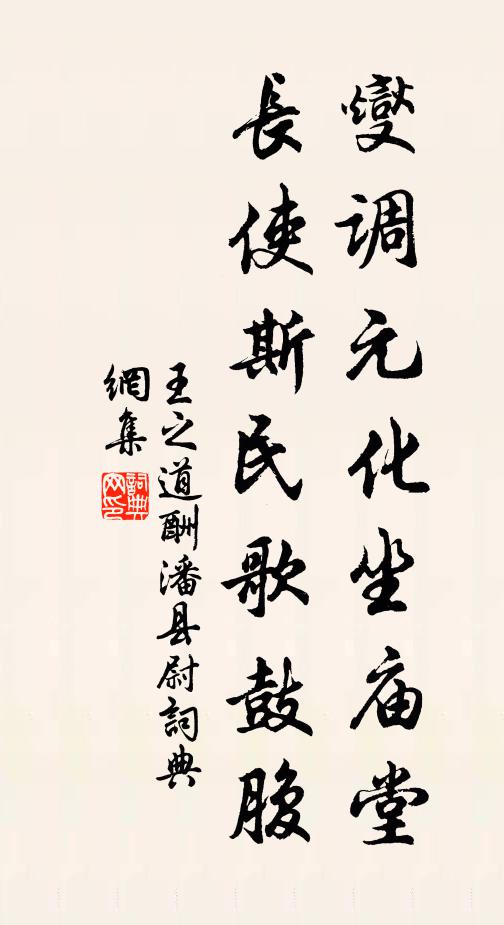 燮调元化坐庙堂
長使斯民歌鼓腹
王之道酬潘县尉詞典
網集
詞典
网印